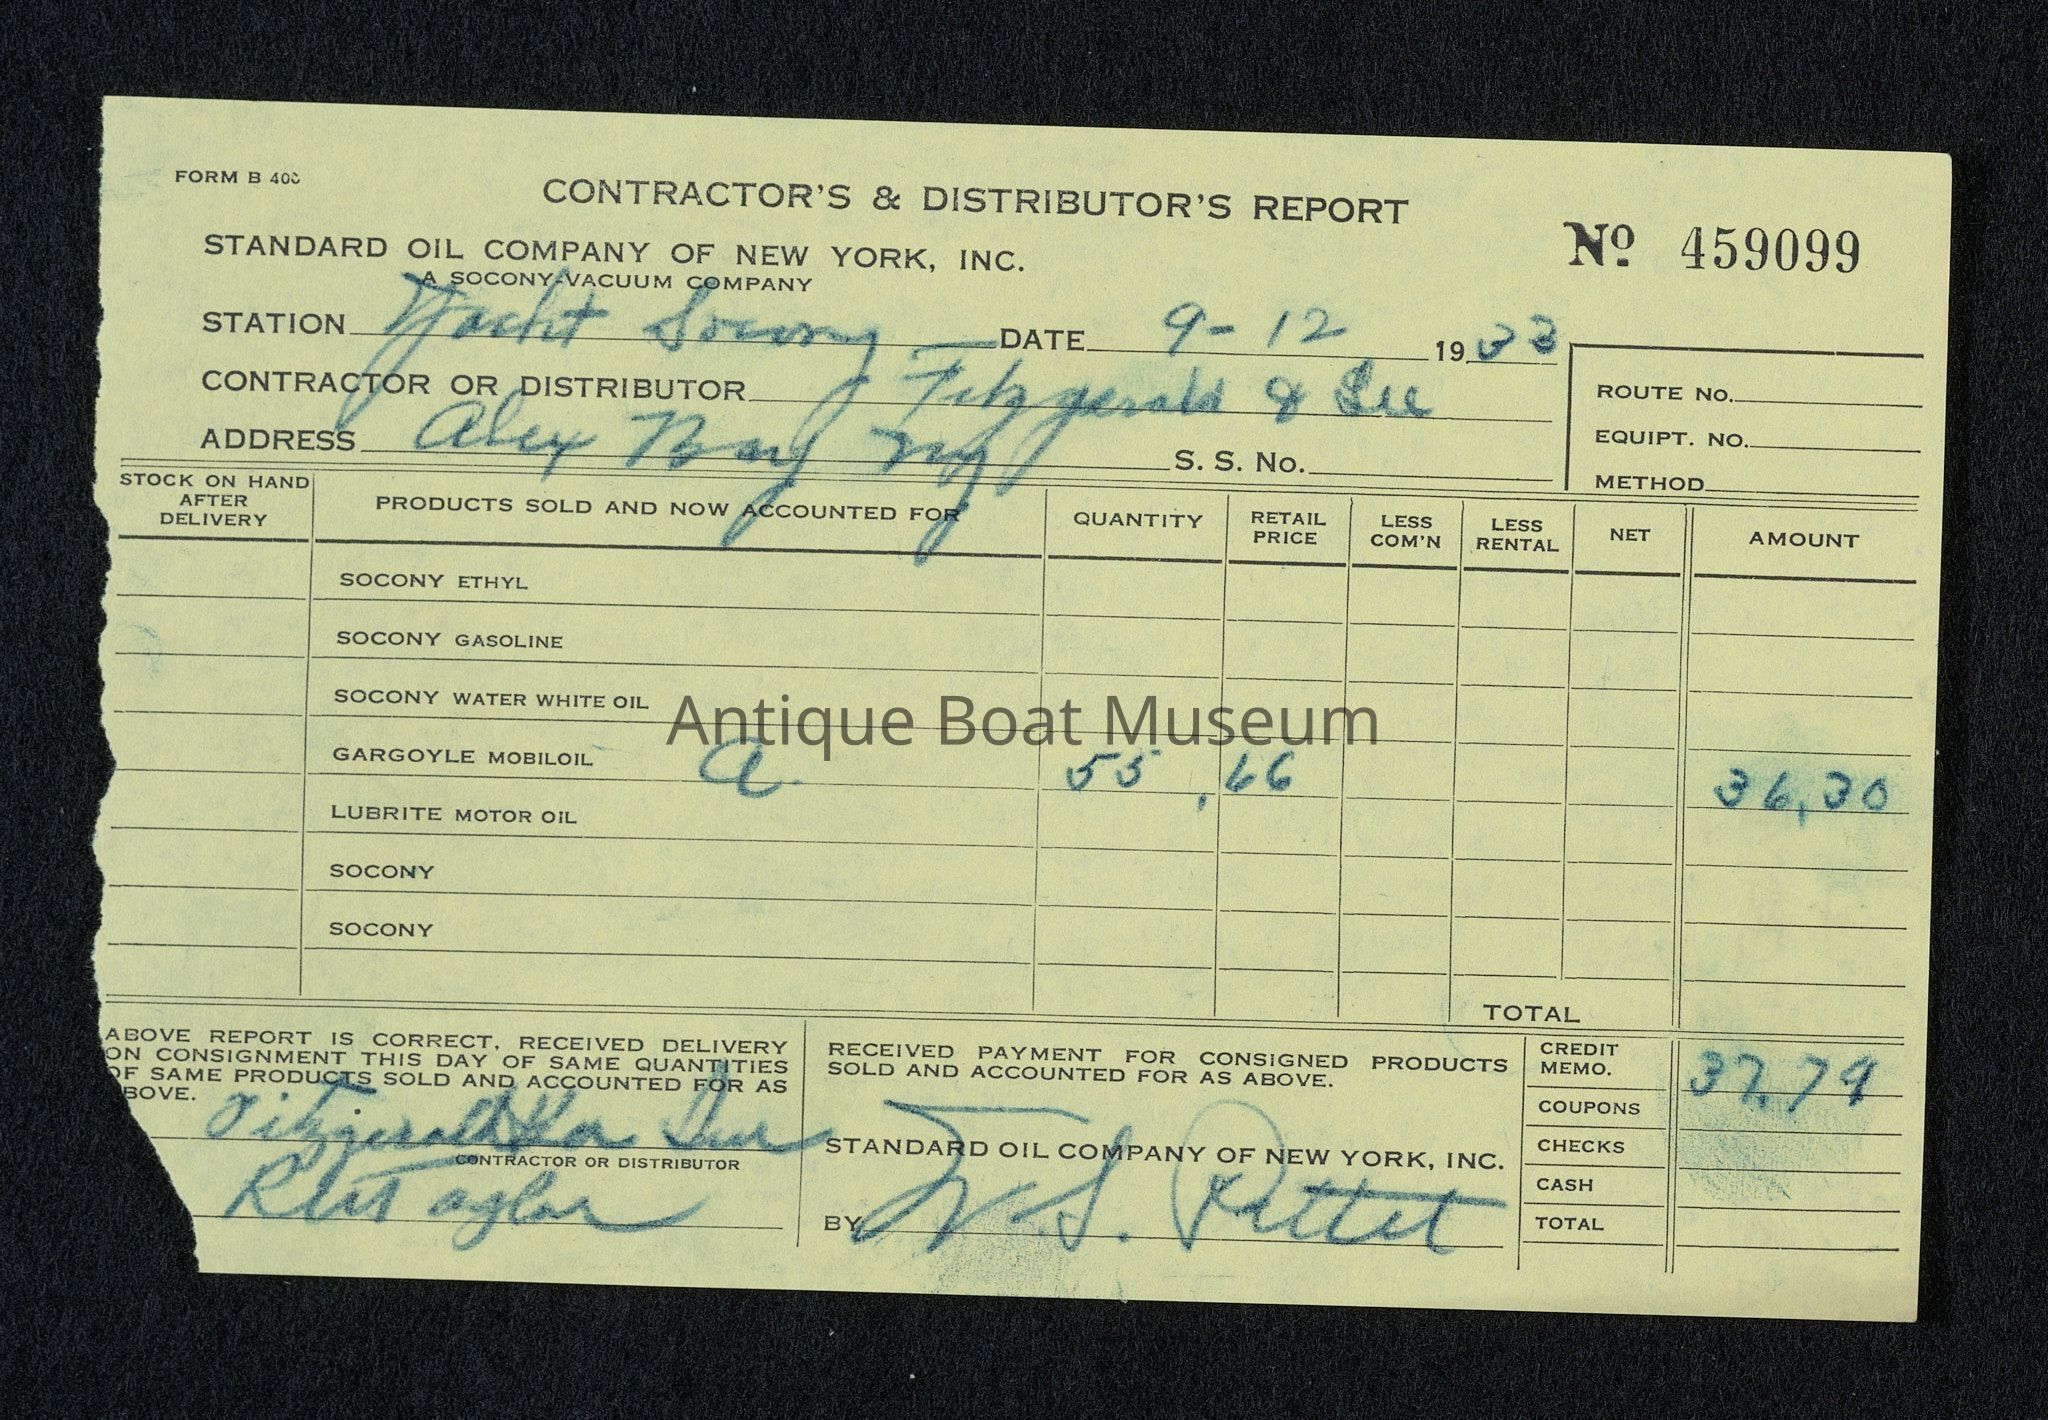 FORM B 400
CONTRACTOR'S & DISTRIBUTOR'S REPORT
Nº 459099
STANDARD OIL COMPANY OF NEW YORK, INC.
A SOCONY-VACUUM COMPANY
STATION Yacht Socony DATE 9-12 1933
CONTRACTOR OR DISTRIBUTOR Fitzgerald & Lee
ADDRESS Alex Bay NY S. S. No.
ROUTE NO.
EQUIPT. NO.
METHOD
STOCK ON HAND AFTER DELIVERY PRODUCTS SOLD AND NOW ACCOUNTED FOR QUANTITY RETAIL PRICE LESS COM'N LESS RENTAL NET AMOUNT
SOCONY ETHYL
SOCONY GASOLINE
SOCONY WATER WHITE OIL
Antique Boat Museum
GARGOYLE MOBILOIL A. 55 .66 36,30
LUBRITE MOTOR OIL
SOCONY
SOCONY
TOTAL
ABOVE REPORT IS CORRECT, RECEIVED DELIVERY
ON CONSIGNMENT THIS DAY OF SAME QUANTITIES
OF SAME PRODUCTS SOLD AND ACCOUNTED FOR AS
BOVE.
Fitzgerald
CONTRACTOR OR DISTRIBUTOR
Taylor
RECEIVED PAYMENT FOR CONSIGNED PRODUCTS
SOLD AND ACCOUNTED FOR AS ABOVE.
STANDARD OIL COMPANY OF NEW YORK, INC.
BY W. S. Pettet
CREDIT MEMO. 37.79
COUPONS
CHECKS
CASH
TOTAL